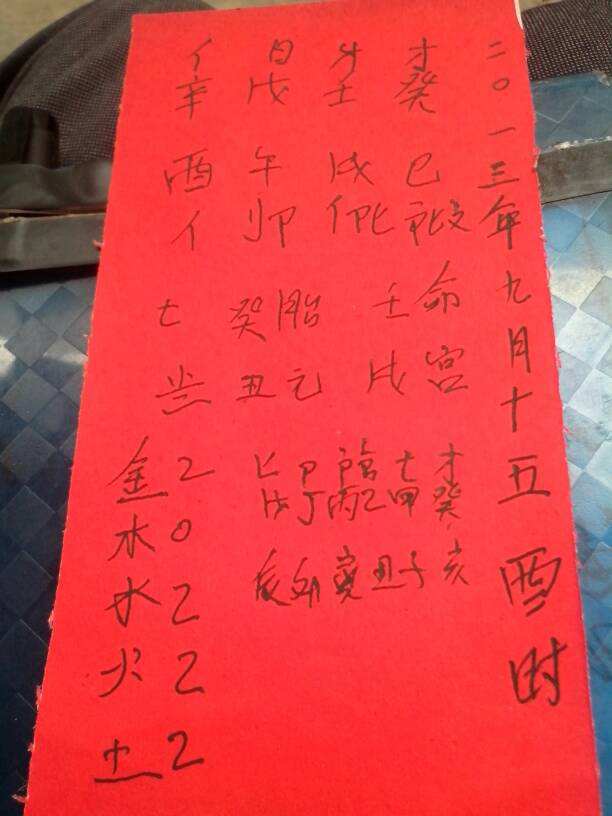 二〇一三年九月十五 酉时
才 才 日 亻
癸 壬 戊 辛
巳 戌 午 酉
卯
命 壬 胎 癸 七
宫 戌 元 丑
才 七
癸 甲 乙 丙 丁 戊
亥 子 丑 寅 卯 辰
金 2
木 0
水 2
火 2
土 2